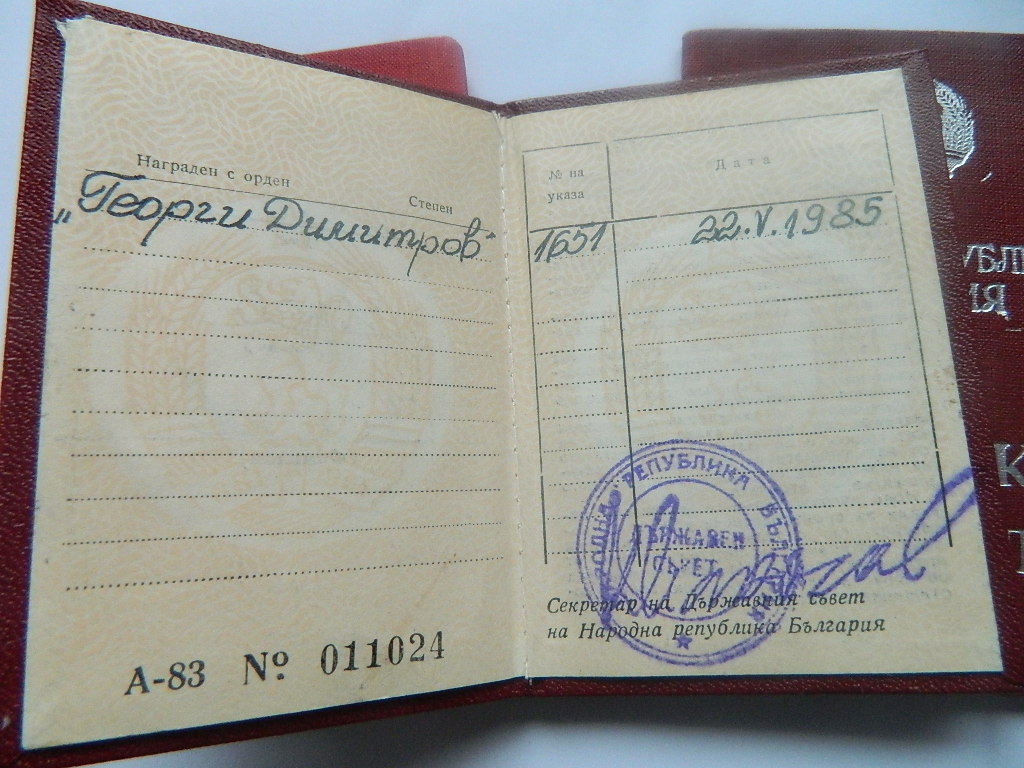 Награден с орден
Степен
„Георги Димитров“
А-83 № 011024
№ на указа
Дата
1651
22.V.1985
НАРОДНА РЕПУБЛИКА БЪЛГАРИЯ
ДЪРЖАВЕН
СЪВЕТ
Секретар на Държавния съвет
на Народна република България